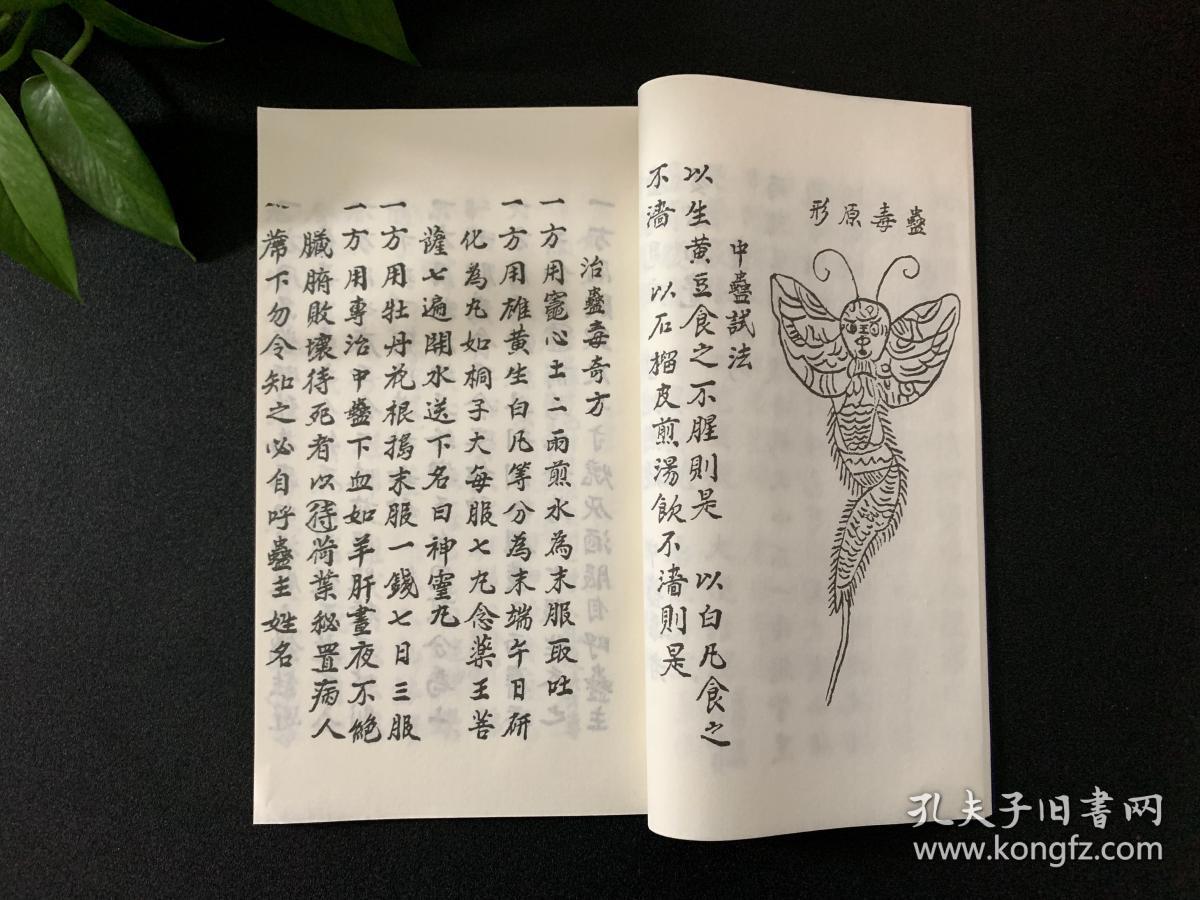 蠱毒原形
中蠱試法
以生黄豆食之不腥則是　以白凡食之
不濇　以石榴皮煎湯飲不濇則是
治蠱毒奇方
一方用竈心土二兩煎水為末服取吐
一方用雄黄生白凡等分為末端午日研
化為丸如桐子大每服七丸念藥王菩
薩七遍開水送下名曰神靈丸
一方用牡丹花根搗末服一錢七日三服
一方用專治中蠱下血如羊肝晝夜不絶
臟腑敗壞待死者以待荷葉秘置病人
蓆下勿令知之必自呼蠱主姓名
孔夫子旧书网
www.kongfz.com